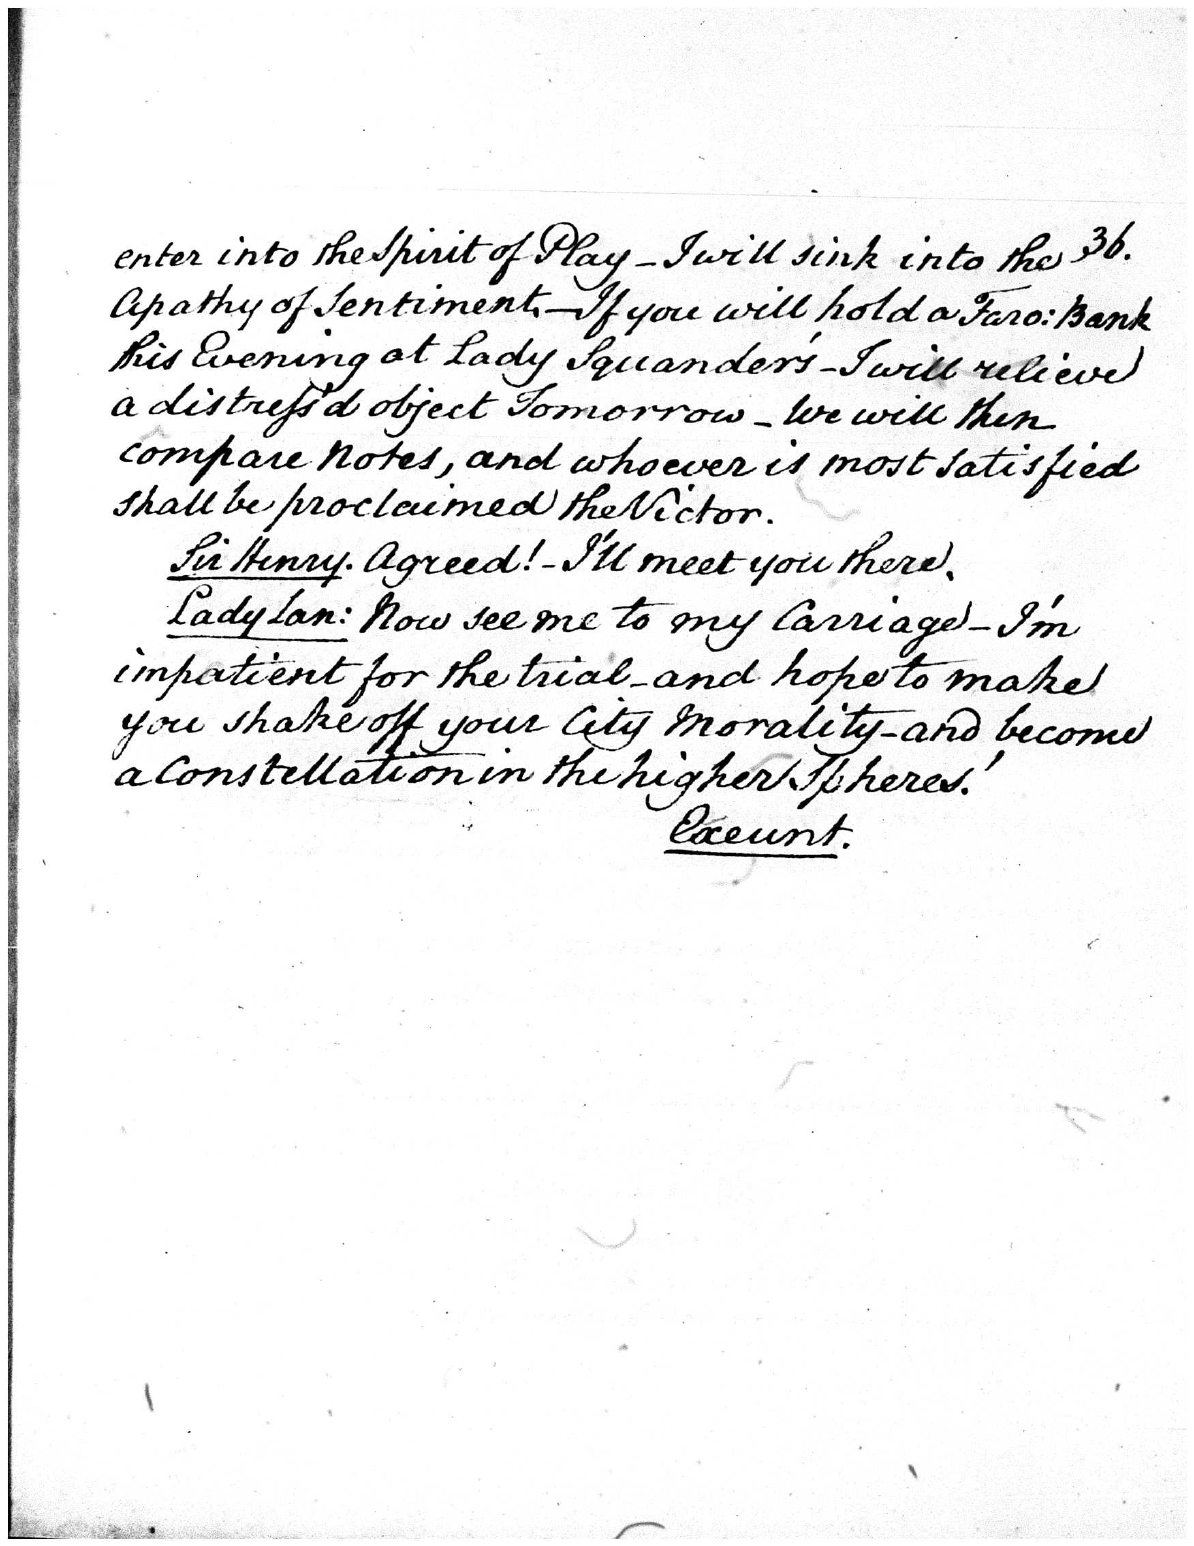 enter into the Spirit of Play – I will sink into the 36.
Apathy of Sentiment. – If you will hold a Faro: Bank
this Evening at Lady Squander's – I will relieve
a distress'd object Tomorrow – We will then
compare Notes, and whoever is most satisfied
shall be proclaimed the Victor.
Sir Henry. Agreed! – I'll meet you there.
Lady Lan: Now see me to my Carriage – I'm
impatient for the trial – and hope to make
you shake off your City Morality – and become
a Constellation in the higher Spheres!
Exeunt.